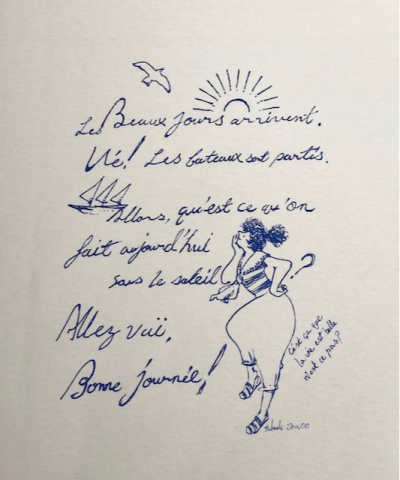 Les Beaux Jours arrivent.
Vé! Les bateaux sont partis.
Allons, qu'est ce qu'on
fait aujourd'hui
sous le soleil ?
Allez vaï,
Bonne journée!
c'est ça que
la vie est belle
n'est ce pas?